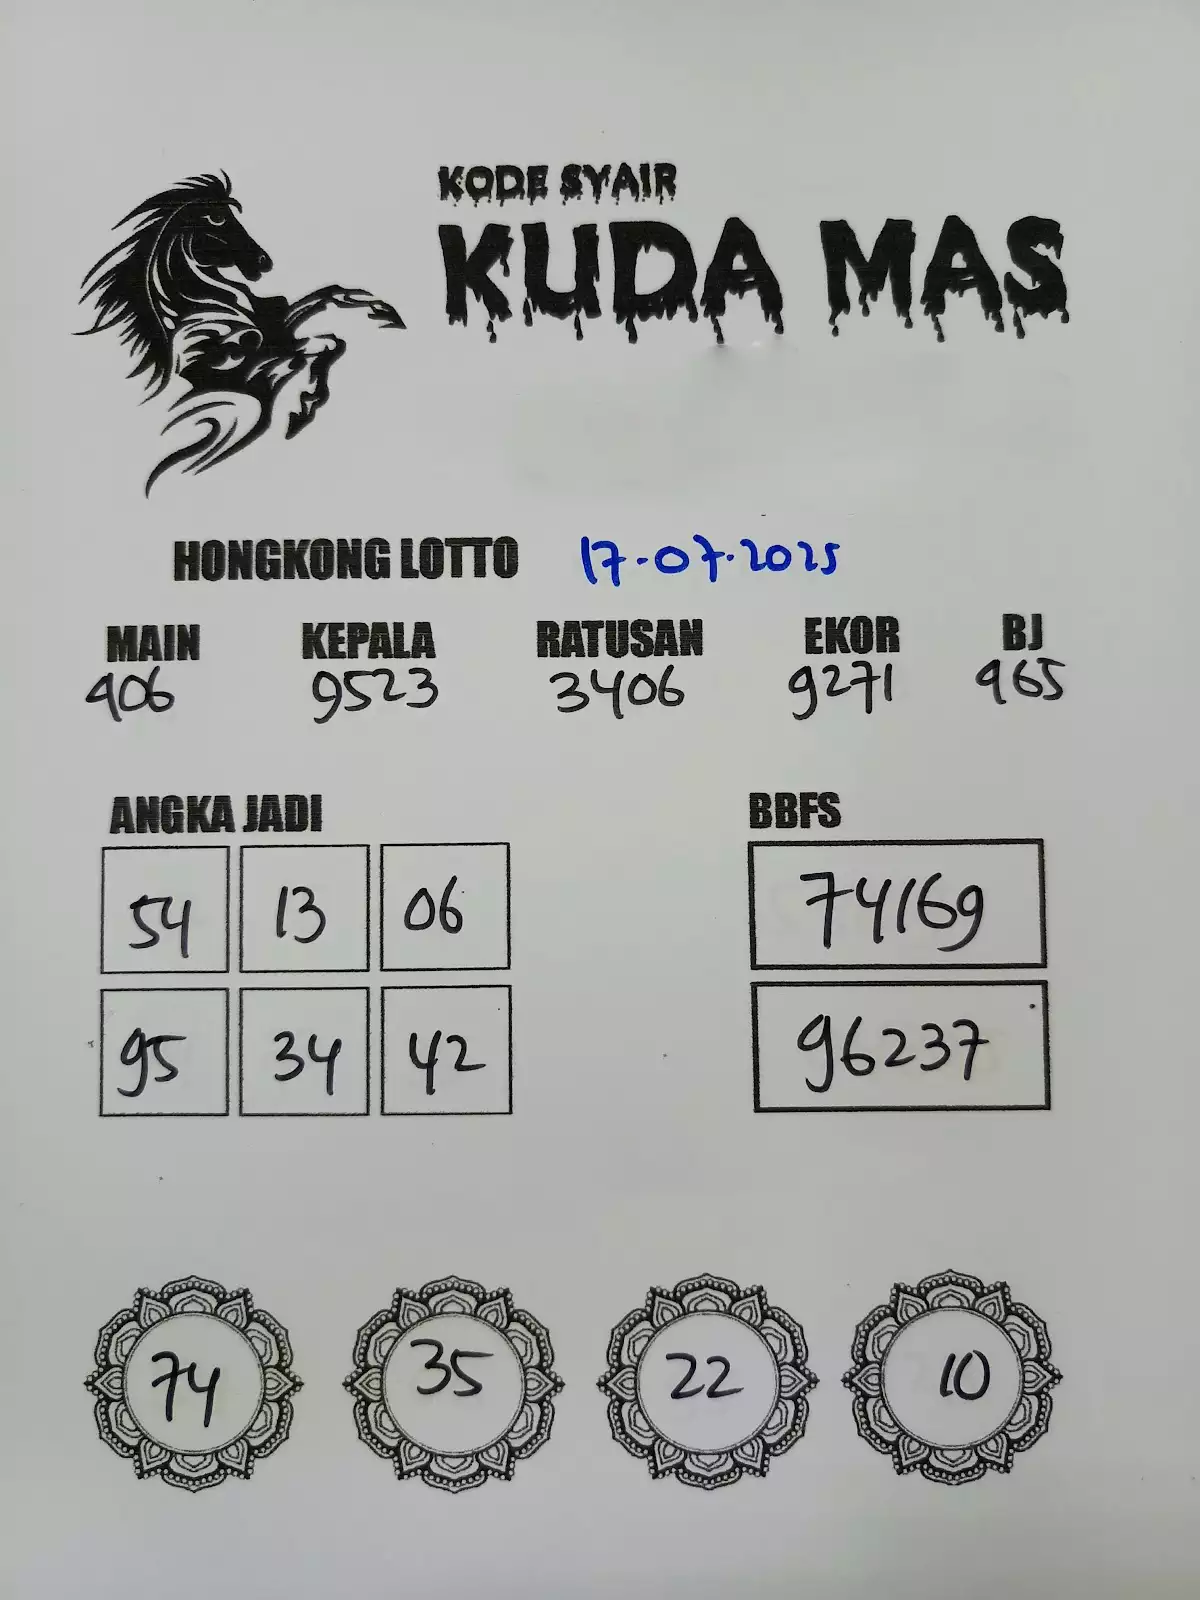 KODE SYAIR
KUDA MAS
HONGKONG LOTTO 17-07-2025
MAIN KEPALA RATUSAN EKOR BJ
906 9523 3406 9271 965
ANGKA JADI BBFS
54 13 06 74169
95 34 42 96237
74 35 22 10